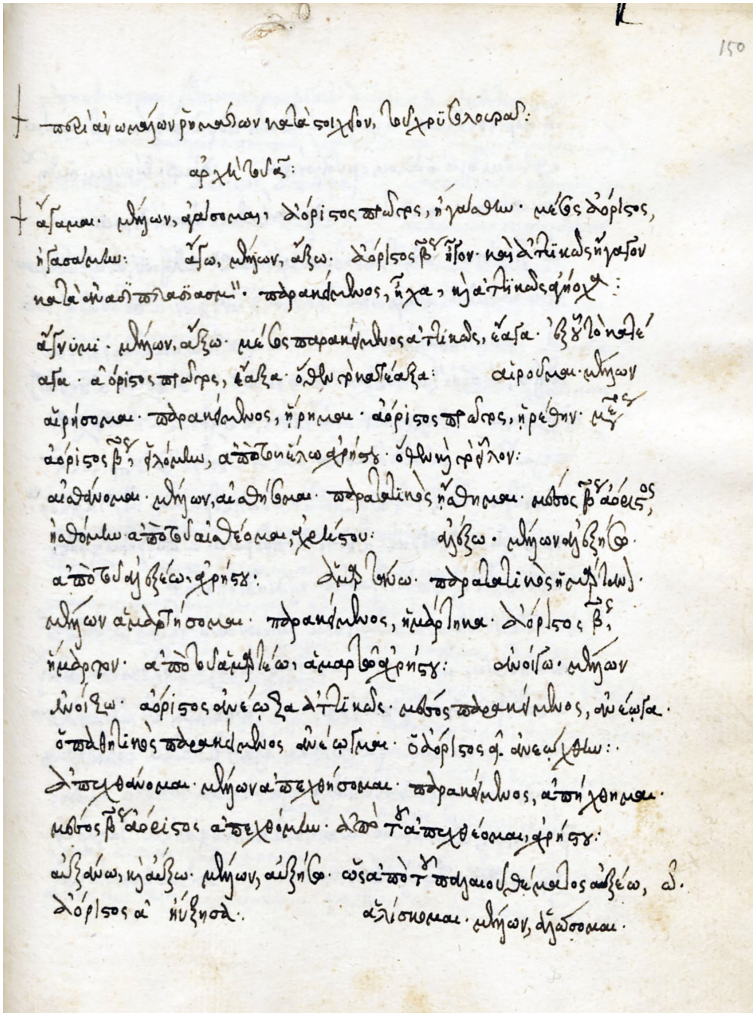 150
περὶ ἀνωμάλων ῥημάτων κατὰ στοιχεῖον, τοῦ χρυσολωρᾶ:
ἀρχὴ τοῦ α:
ἄγαμαι. μέλλων, ἀγάσομαι, ἀόριστος πρῶτος, ἠγάσθην. μέσος ἀόριστος,
ἠγασάμην: ἄγω, μέλλων, ἄξω. ἀόριστος βος ἦγον. καὶ ἀττικῶς ἤγαγον
κατὰ ἀναδιπλασιασμόν. παρακείμενος, ἦχα, καὶ ἀττικῶς ἀγήοχα:
ἄγνυμι. μέλλων, ἄξω. μέσος παρακείμενος ἀττικῶς, ἔαγα. ἐξ οὗ τὸ κατέ
αγα. ἀόριστος πρῶτος, ἔαξα. ὅθεν τὸ κατέαξα: αἱροῦμαι. μέλλων
αἱρήσομαι. παρακείμενος, ᾕρημαι. ἀόριστος πρῶτος, ᾑρέθην. μέσος
ἀόριστος βος, εἱλόμην, ἀπὸ τοῦ ἕλω ἀχρήστου. ὅθεν καὶ τὸ εἷλον:
αἰσθάνομαι. μέλλων, αἰσθήσομαι. παρατατικὸς ᾔσθημαι. μέσος βος ἀόριστος,
ᾐσθόμην ἀπὸ τοῦ αἰσθέομαι, ἀχρήστου: ἀλέξω. μέλλων ἀλεξήσω.
ἀπὸ τοῦ ἀλεξέω, ἀχρήστου: ἁμαρτάνω. παρατατικὸς ἡμάρτανον.
μέλλων ἁμαρτήσομαι. παρακείμενος, ἡμάρτηκα. ἀόριστος βος,
ἥμαρτον. ἀπὸ τοῦ ἁμαρτέω, ἁμαρτῶ ἀχρήστου: ἀνοίγω. μέλλων
ἀνοίξω. ἀόριστος ἀνέῳξα ἀττικῶς. μέσος παρακείμενος, ἀνέῳγα.
ὁ παθητικὸς παρακείμενος ἀνέῳγμαι. ὁ ἀόριστος α ἀνεῴχθην:
ἀπεχθάνομαι. μέλλων ἀπεχθήσομαι. παρακείμενος, ἀπήχθημαι.
μέσος βος ἀόριστος ἀπεχθόμην. ἀπὸ τοῦ ἀπεχθέομαι, ἀχρήστου:
αὐξάνω, καὶ αὔξω. μέλλων, αὐξήσω. ὡς ἀπὸ τοῦ παλαιοῦ θέματος αὐξέω, ῶ.
ἀόριστος α ηὔξησα: ἁλίσκομαι. μέλλων, ἁλώσομαι.